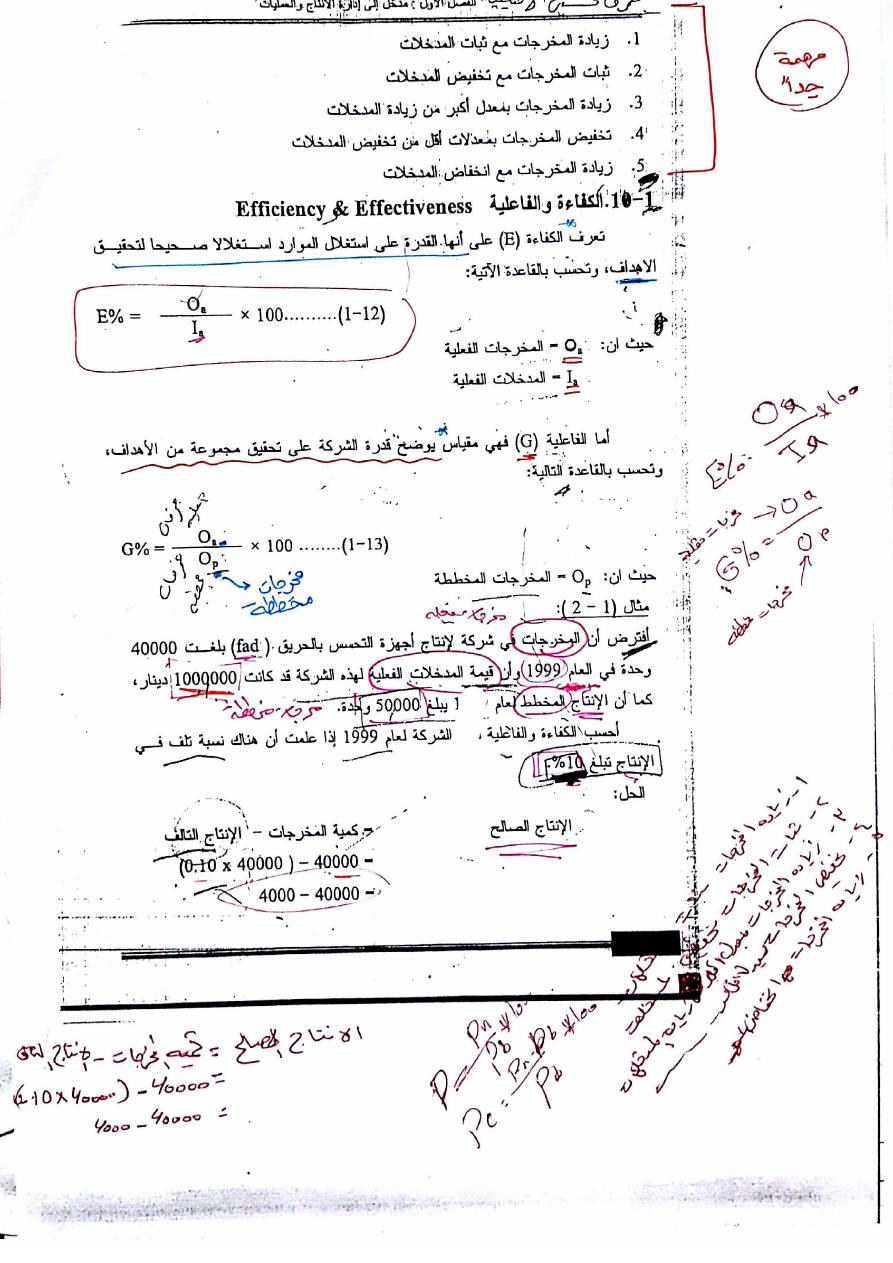 الفصل الأول : مدخل إلى إدارة الانتاج والعمليات
مهمة
جداً
1. زيادة المخرجات مع ثبات المدخلات
2. ثبات المخرجات مع تخفيض المدخلات
3. زيادة المخرجات بمعدل أكبر من زيادة المدخلات
4. تخفيض المخرجات بمعدلات أقل من تخفيض المدخلات
5. زيادة المخرجات مع انخفاض المدخلات
10-1. الكفاءة والفاعلية Efficiency & Effectiveness
تعرف الكفاءة (E) على أنها القدرة على استغلال الموارد استغلالا صحيحا لتحقيق
الاهداف، وتحسب بالقاعدة الآتية:
E% = Oa / Ia × 100..........(1-12)
حيث ان: Oa = المخرجات الفعلية
Ia = المدخلات الفعلية
E% = Oa / Ia * 100
أما الفاعلية (G) فهي مقياس يوضح قدرة الشركة على تحقيق مجموعة من الأهداف،
وتحسب بالقاعدة التالية:
G% = Oa / Op × 100 ........(1-13)
مخرجات
مخططة
G% = Oa / Op
مخرجات مخططة
حيث ان: Op = المخرجات المخططة
مثال (1 – 2):
أفترض أن المخرجات في شركة لإنتاج أجهزة التحسس بالحريق (fad) بلغت 40000
وحدة في العام 1999 وأن قيمة المدخلات الفعلية لهذه الشركة قد كانت 1000000 دينار ،
كما أن الإنتاج المخطط لعام يبلغ 50000 وحدة. مخرجات مخططة
أحسب الكفاءة والفاعلية ، الشركة لعام 1999 إذا علمت أن هناك نسبة تلف في
الإنتاج تبلغ 10%.
الحل:
الإنتاج الصالح = كمية المخرجات – الإنتاج التالف
= 40000 – (40000 x 0.10)
= 40000 – 4000
الانتاج الصالح = كمية المخرجات - الانتاج
= 40000 - (40000 x 0.10
= 40000 - 4000
P = Pn / Pb * 100
Pc = Pn - Pb / Pb * 100
1- زيادة المخرجات
2- ثبات المخرجات
3- زيادة المخرجات بمعدل اكبر زيادة المدخلات
4- تخفيض المخرجات
5- زيادة المخرجات مع انخفاض